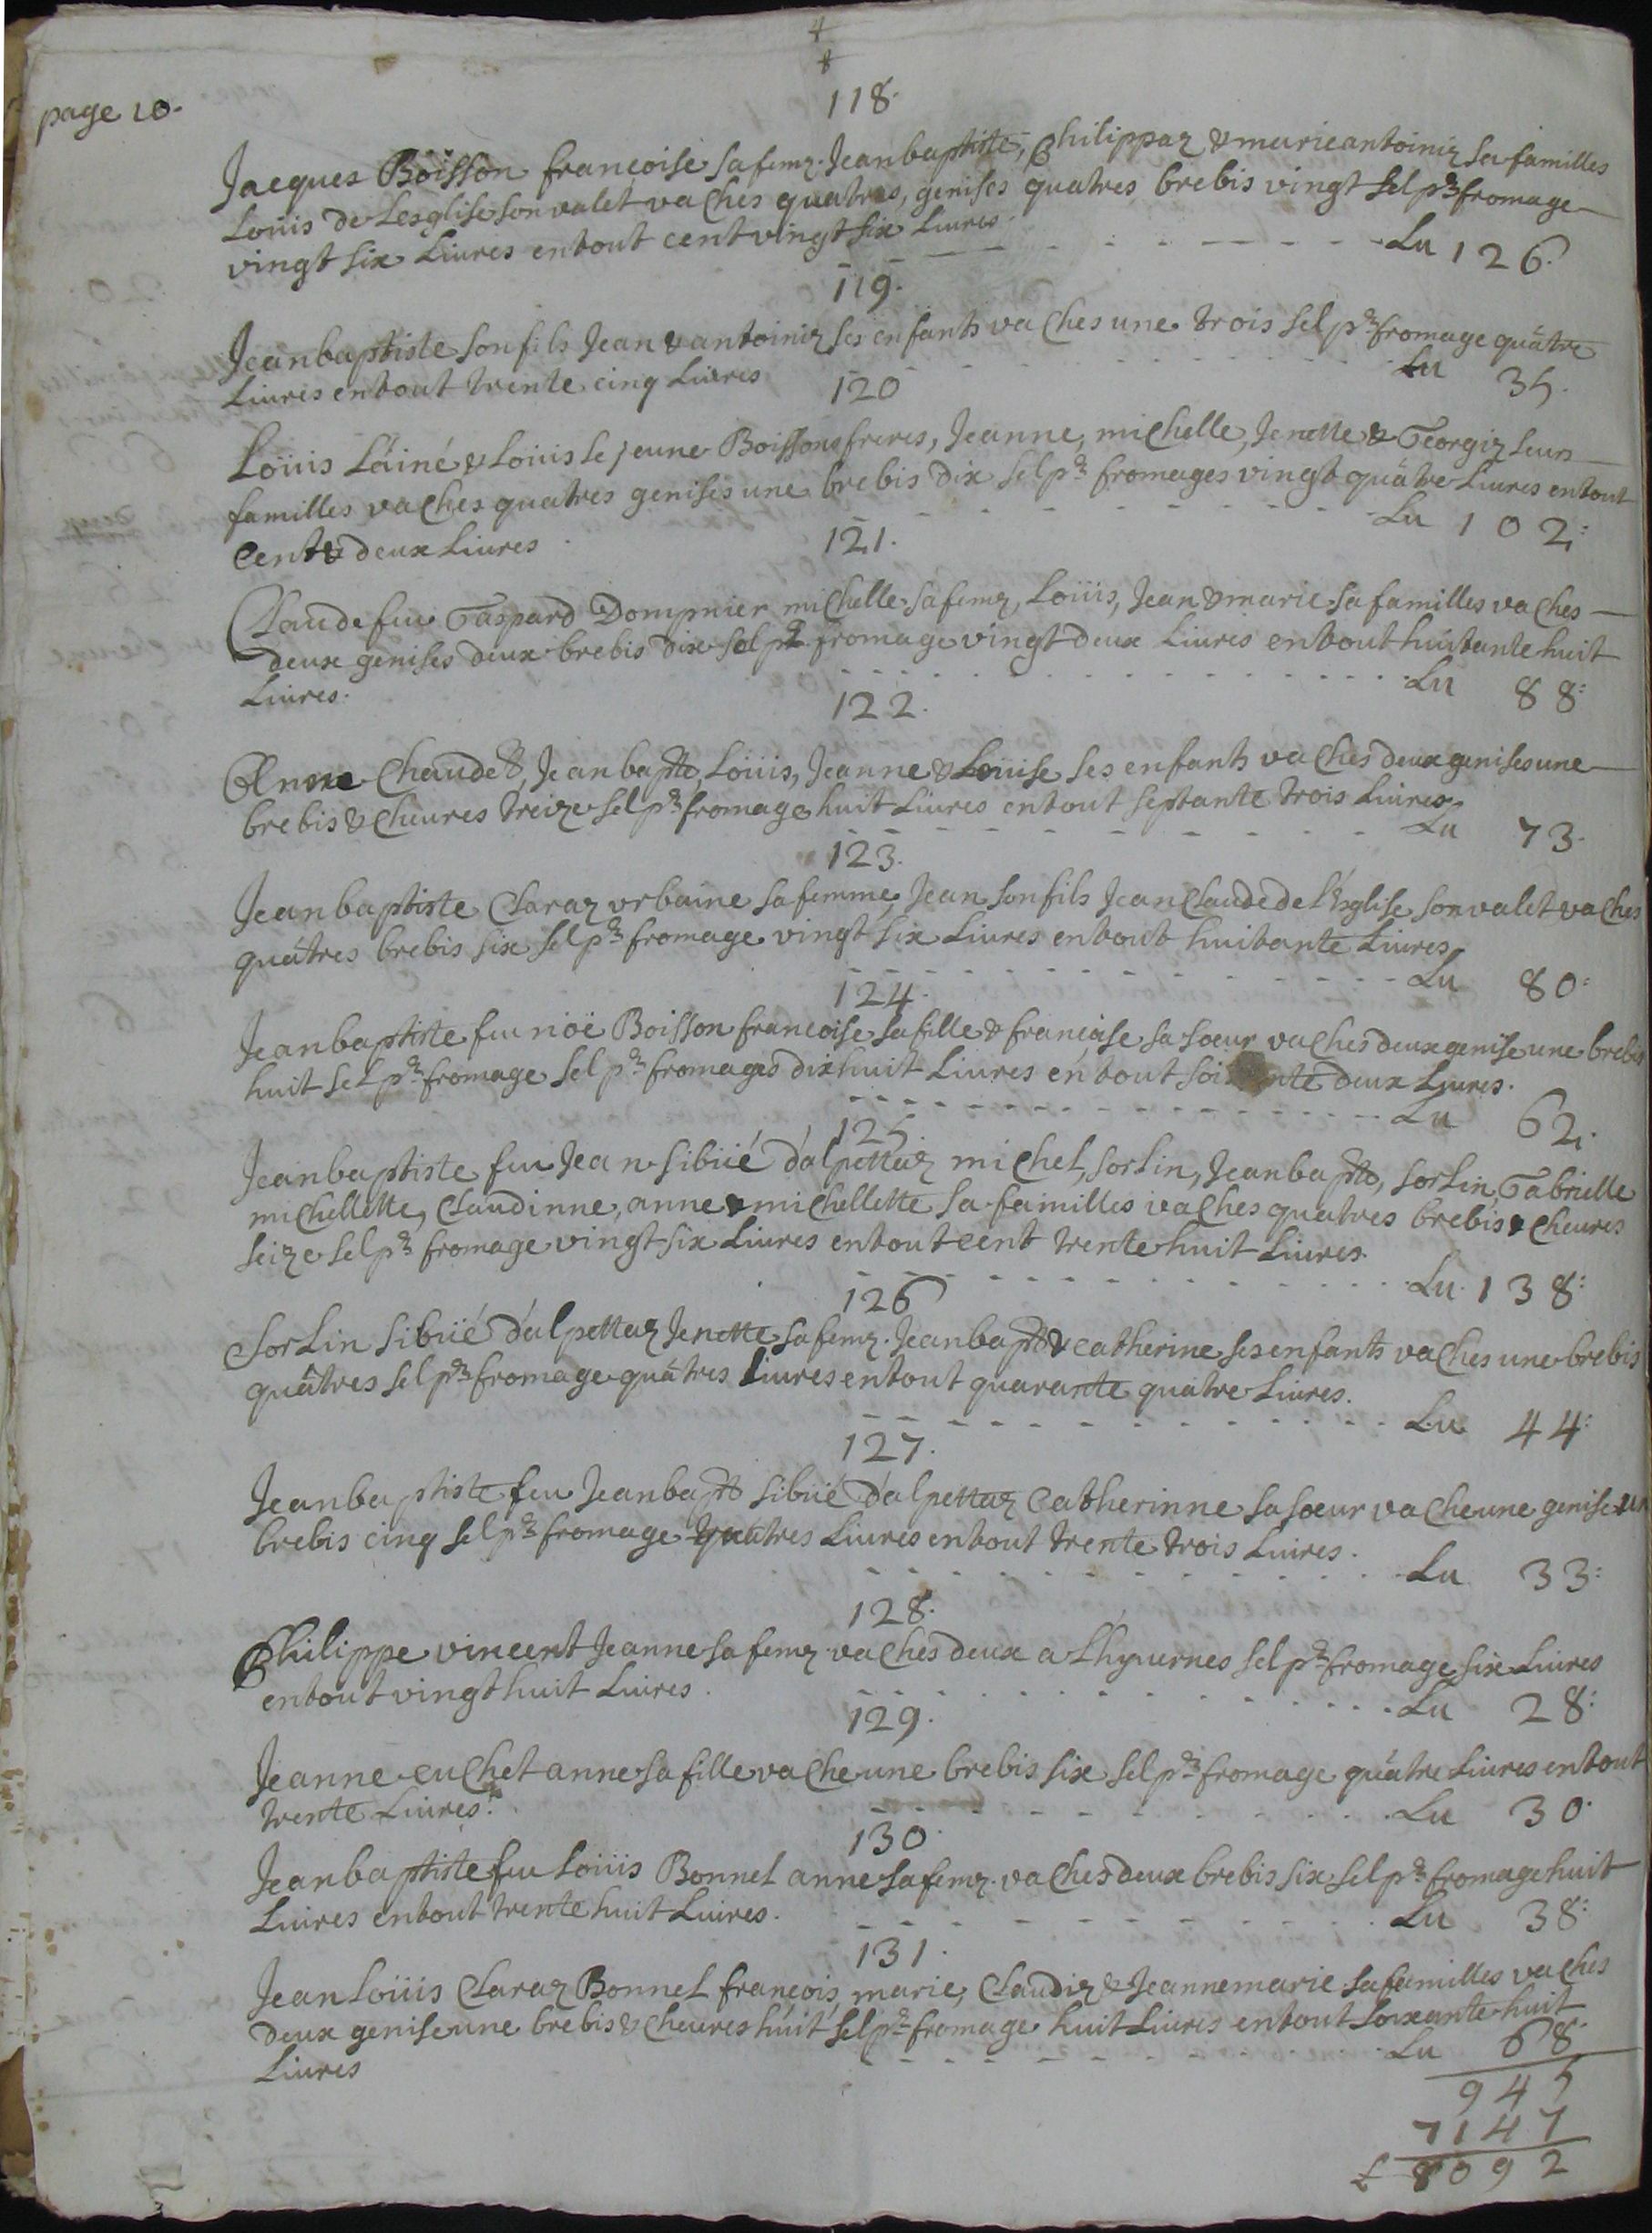 page 10.
118.
Jacques Boisson françoise sa femz. Jeanbaptiste, Philippaz & marieantoiniz sa familles
Loüis de Lesglise son valet vaches quatres, genises quatres brebis vingt sel pr fromage
vingt six Liures entout cent vingt six Liures
Lu 126.
119.
Jeanbaptiste son fils Jean & antoiniz ses enfants vaches une trois sel pr fromage quâtre
Liures entout trente cinq Liures
Lu 35.
120
Loüis L'áiné & Loüis le jeune Boissons freres, Jeanne, michelle, Jenette & Georgiz leurs
familles vaches quatres genises une brebis dix sel pr fromages vingt quâtre Liures entout
Cent & deux Liures
Lu 102:
121.
Claude feu Gaspard Dompnier michelle sa femz, Loüis, Jean & marie sa familles vaches
deux genises deux brebis dix sel pr fromage vingt deux Liures entout huitante huit
Liures.
Lu 88:
122.
Anne Chaudet, Jeanbapte, Loüis, Jeanne & Louise ses enfants vaches deux genises une
brebis & cheures treize sel pr fromage huit Liures entout septante trois Liures
Lu 73.
123.
Jeanbaptiste Claraz urbaine sa femme, Jean son fils Jean Claude de l'Esglise son valet vaches
quâtres brebis six sel pr fromage vingt six Liures entout huitante Liures
Lu 80:
124.
Jeanbaptiste feu nöé Boisson françoise sa fille & françoise sa soeur vaches deux genise une brebis
huit sel pr fromage sel pr fromages dixhuit Liures entout soixante deux Liures.
Lu 62.
125.
Jeanbaptiste feu Jean sibüé d'alpettaz michel, sorlin, Jeanbapte, sorlin, Gabrielle
michellette, Claudinne, anne & michellette sa familles vaches quatres brebis & cheures
seize sel pr fromage vingt six Liures entout cent trente huit Liures
Lu. 138:
126
Sorlin sibüé d'alpettaz Jenette sa femz. Jeanbapte & catherine ses enfants vaches une brebis
quâtres sel pr fromage quâtres Liures entout quarante quatre Liures.
Lu 44:
127.
Jeanbaptiste feu Jeanbapte sibüé d'alpettaz Catherinne sa soeur vache une genise un
brebis cinq sel pr fromage quatres Liures entout trente trois Liures.
Lu 33:
128.
Philippe vincent Jeanne sa femz vaches deux a L'hyuernes sel pr fromage six Liures
entout vingt huit Liures.
Lu 28:
129.
Jeanne cuchet anne sa fille vache une brebis six sel pr fromage quâtre Liures entout
trente Liures.
Lu 30.
130.
Jeanbaptiste feu Loüis Bonnel anne sa femz. vaches deux brebis six sel pr fromage huit
Liures entout trente huit Liures.
Lu 38:
131.
Jean Loüis Claraz Bonnel françois, marie, Claudiz & Jeannemarie sa familles vaches
deux genise une brebis & cheures huit sel pr fromage huit Liures entout soixante huit
Liures
Lu 68.
945
7147
£ 8092